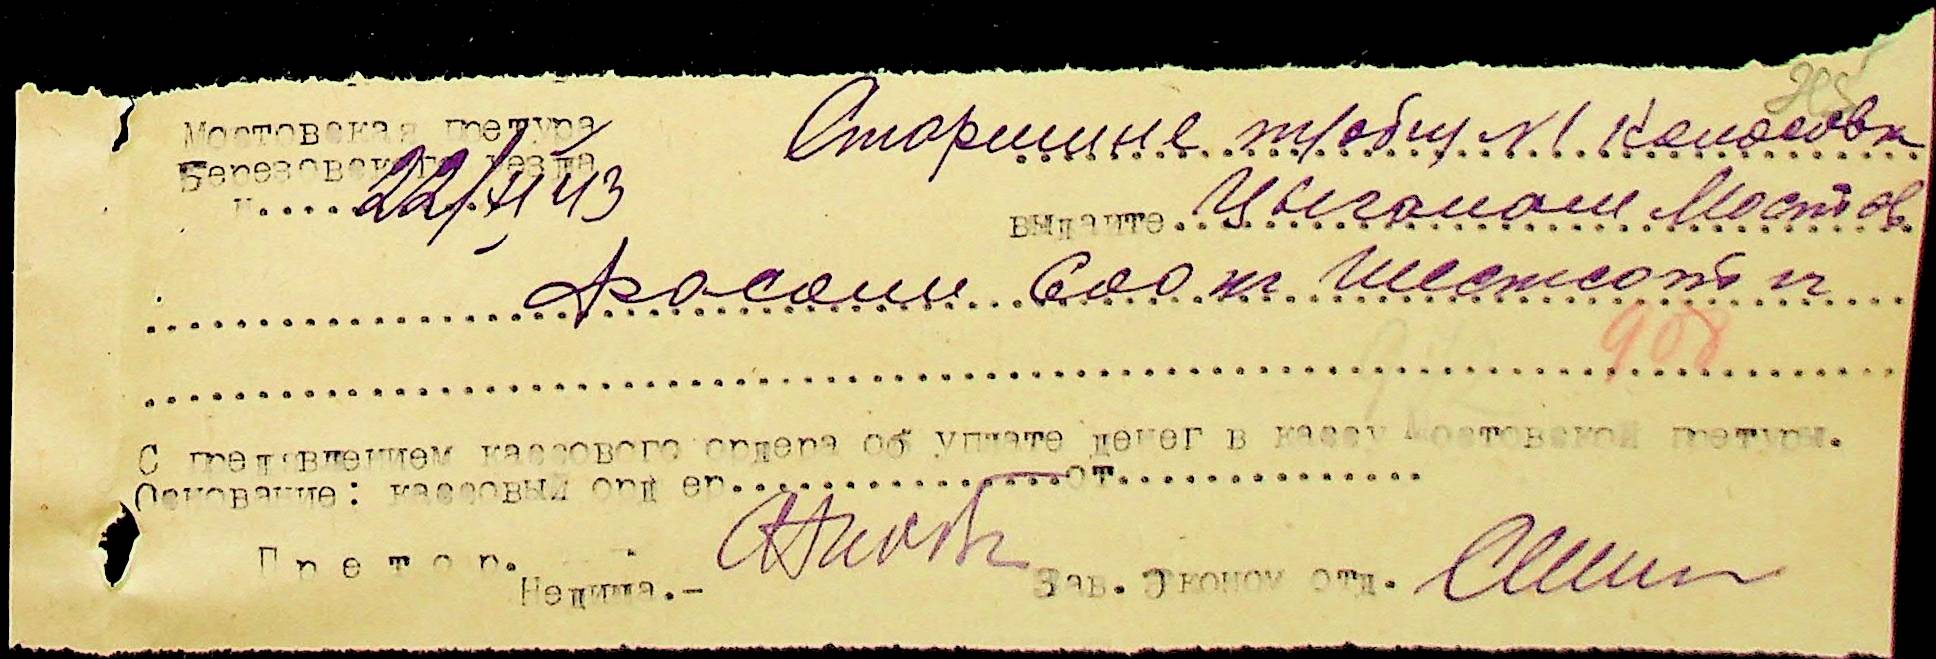 Мостовская претура
Березовского уезда
22/XI 43
Старшине т/общ N1
выдайте Цыганам Мостов
фасоли 600 кг Шестьсот кг
908
С пред'явлением кассового ордера об уплате денег в кассу Мостовской претуры.
Основание: кассовый орд ер................от...............
Претор.
Недица.-
Зав. Эконом отд.